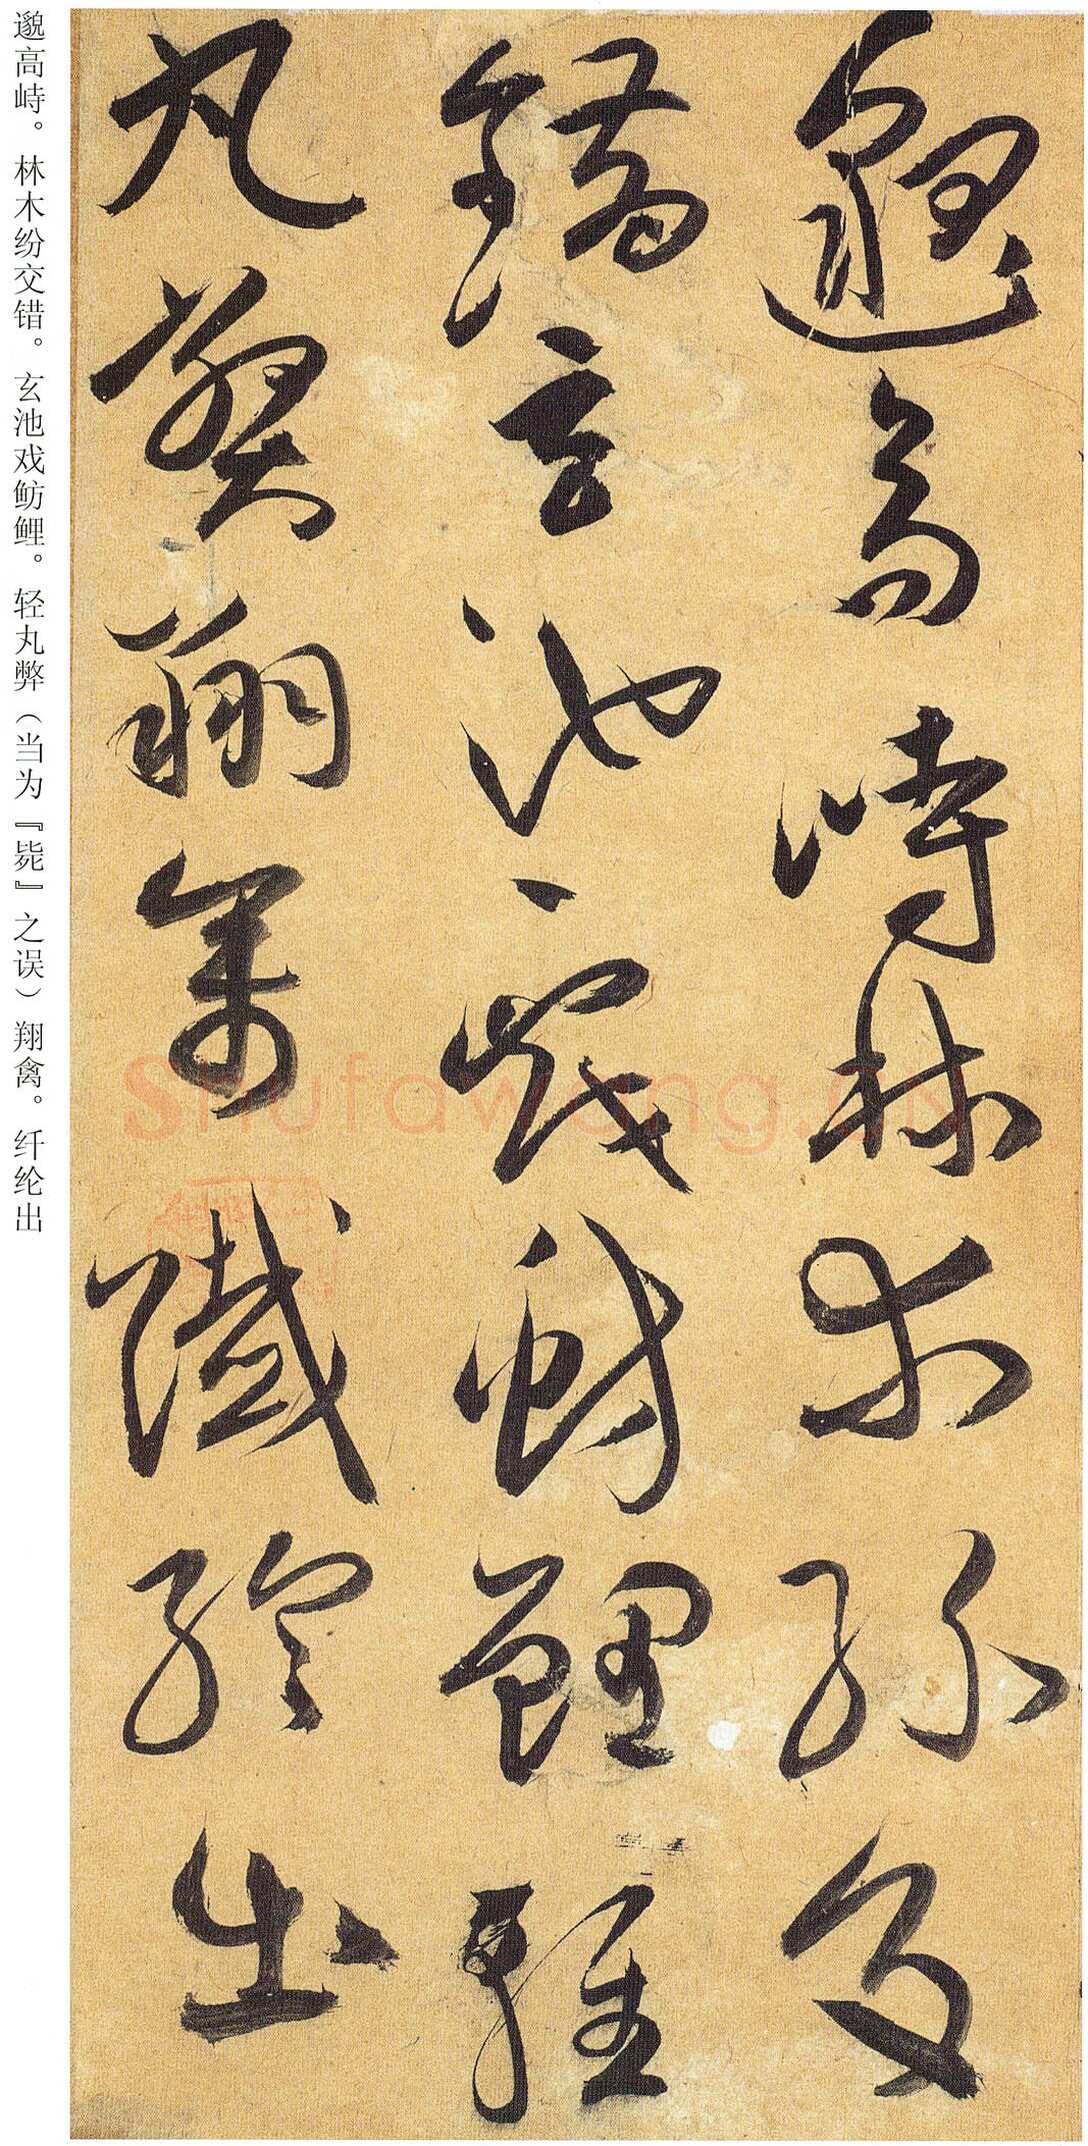 邈高峙林木纷交
错玄池戏鲂鲤轻
丸弊翔禽纤纶出
邈高峙。林木纷交错。玄池戏鲂鲤。轻丸弊（当为『毙』之误）翔禽。纤纶出
Shufawang.cn